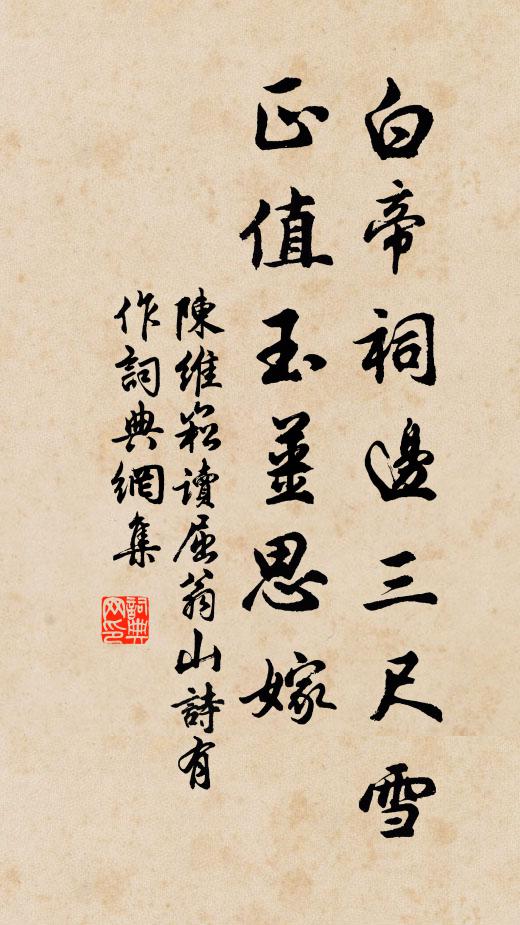 白帝祠邊三尺雪
正值玉薑思嫁
陳維崧讀屈翁山詩有
作詞典網集
詞典
网印